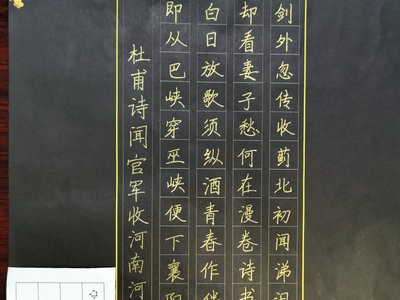 剑外忽传收蓟北初闻涕
却看妻子愁何在漫卷诗书
白日放歌须纵酒青春作伴
即从巴峡穿巫峡便下襄阳
杜甫诗闻官军收河南河